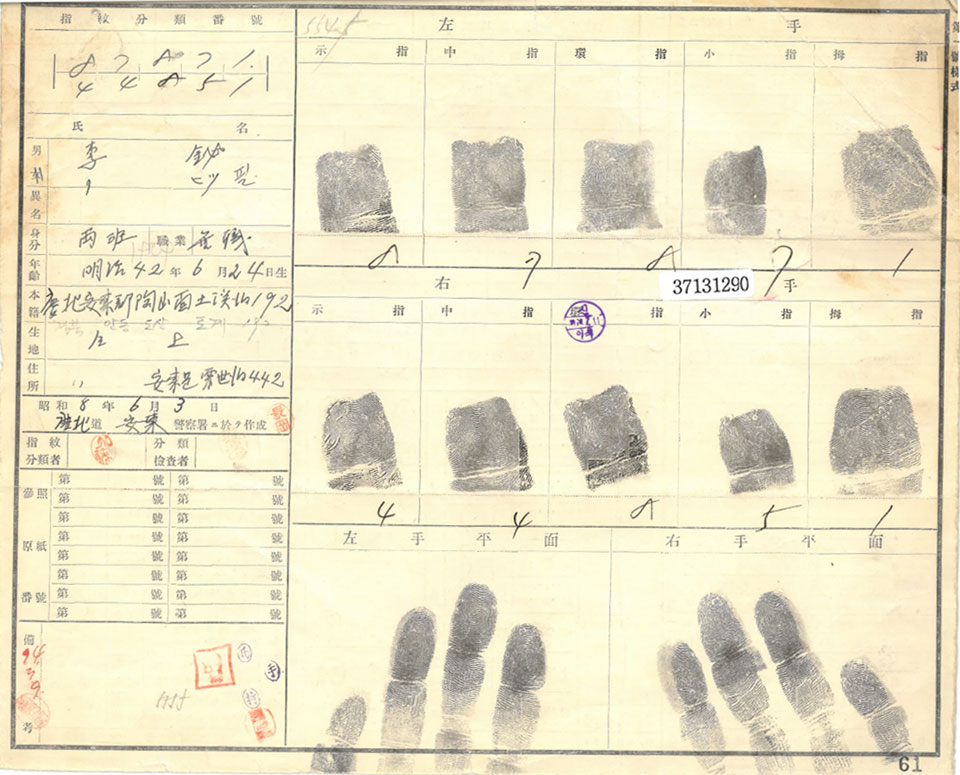 指紋分類番號
8 7 8 7 1
4 4 8 5 1
氏 名
男
李 鉍
ヒツ 필
異名
身分 両班 職業 無職
年齡 明治42年6月24日生
本籍 慶北安東郡陶山面土溪洞192
경북 안동 도산 토계 192
生地 仝 上
住所 〃 安東邑 洞442
昭和8年6月3日
慶北道 安東 警察署ニ於テ作成
指紋分類者 分類檢查者
參照原紙番號
第 號 第 號
第 號 第 號
第 號 第 號
第 號 第 號
第 號 第 號
第 號 第 號
第 號 第 號
第 號 第 號
備考
左 手
示指 中指 環指 小指 拇指
8 7 8 7 1
37131290
右 手
示指 中指 指 小指 拇指
4 4 8 5 1
左手平面 右手平面
61